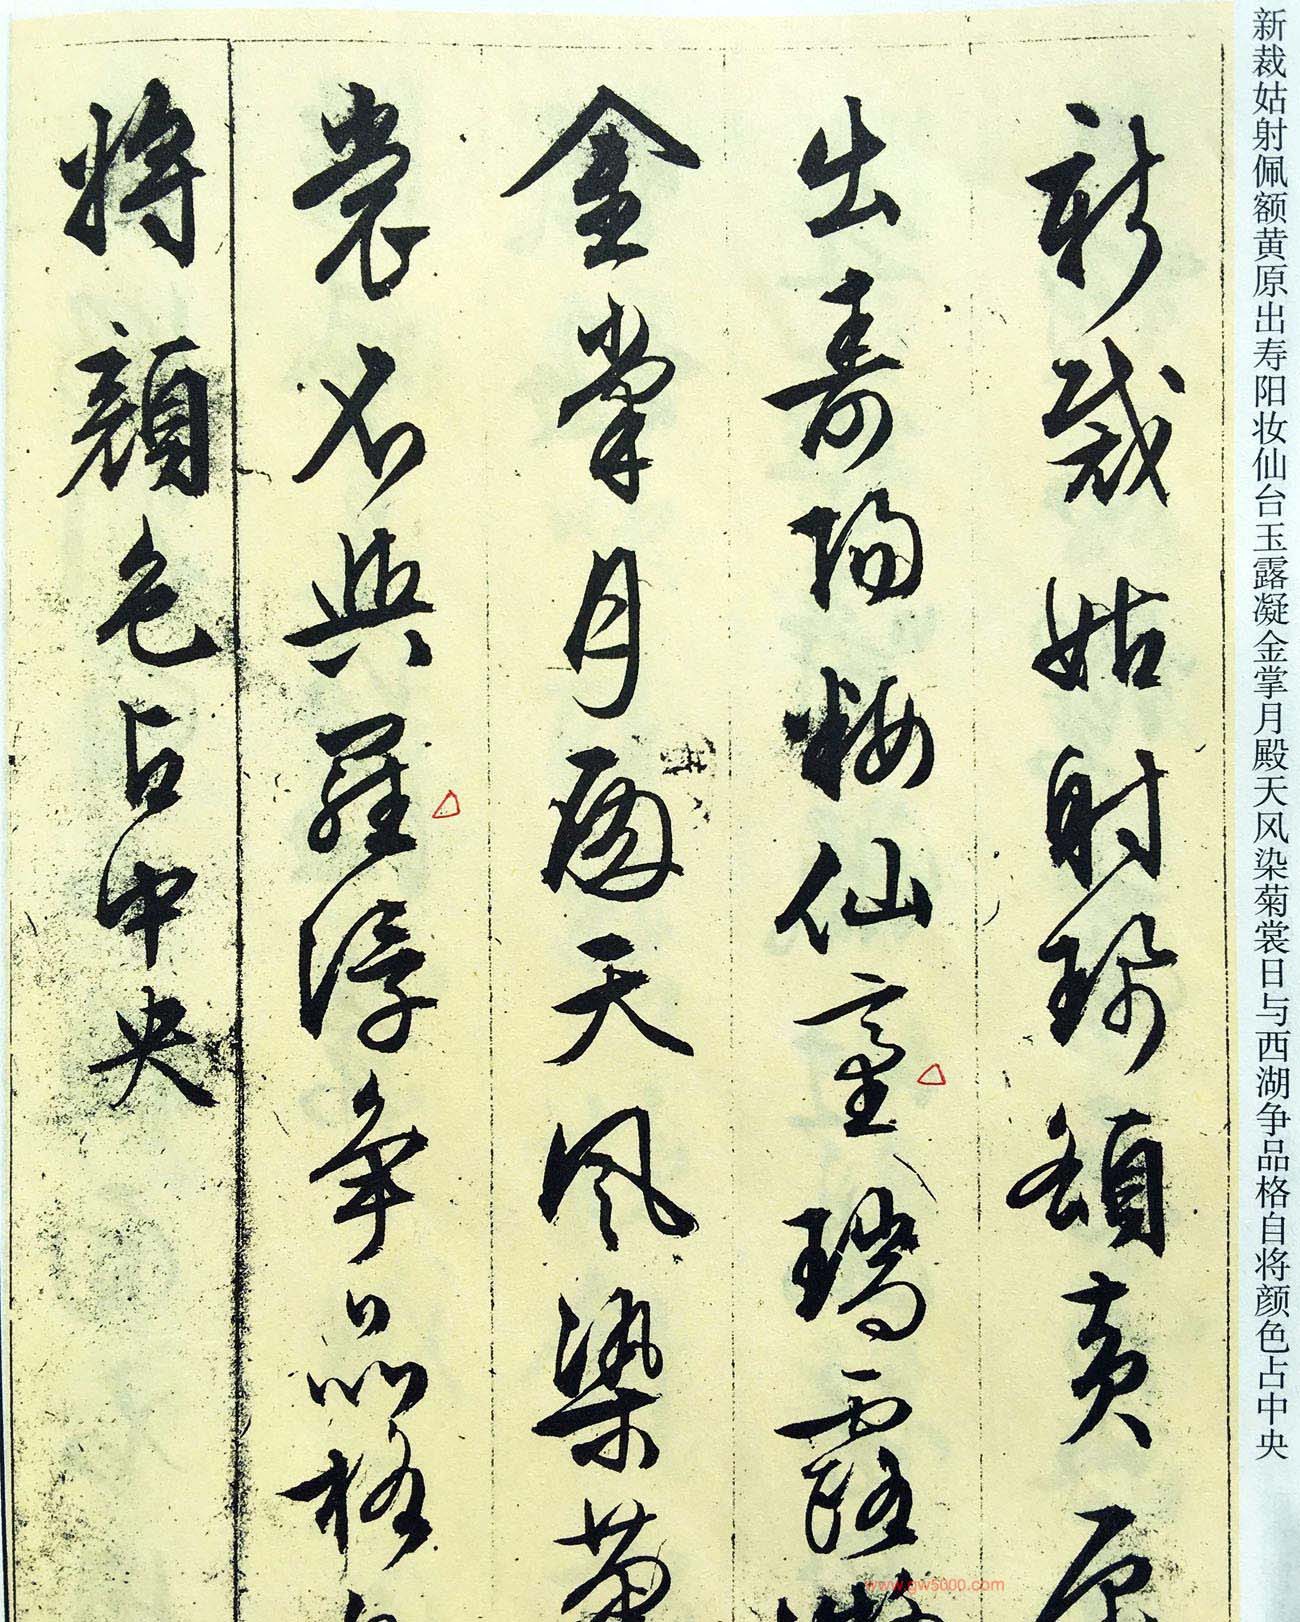 新裁姑射佩额黄原出寿阳妆仙台玉露凝金掌月殿天风染菊裳日与西湖争品格自将颜色占中央
新裁姑射珮額黄原
出壽陽粧仙臺瑞露凝
金掌月殿天風染菊
裳名與羅浮争品格自
將顔色占中央
www.gw5000.com